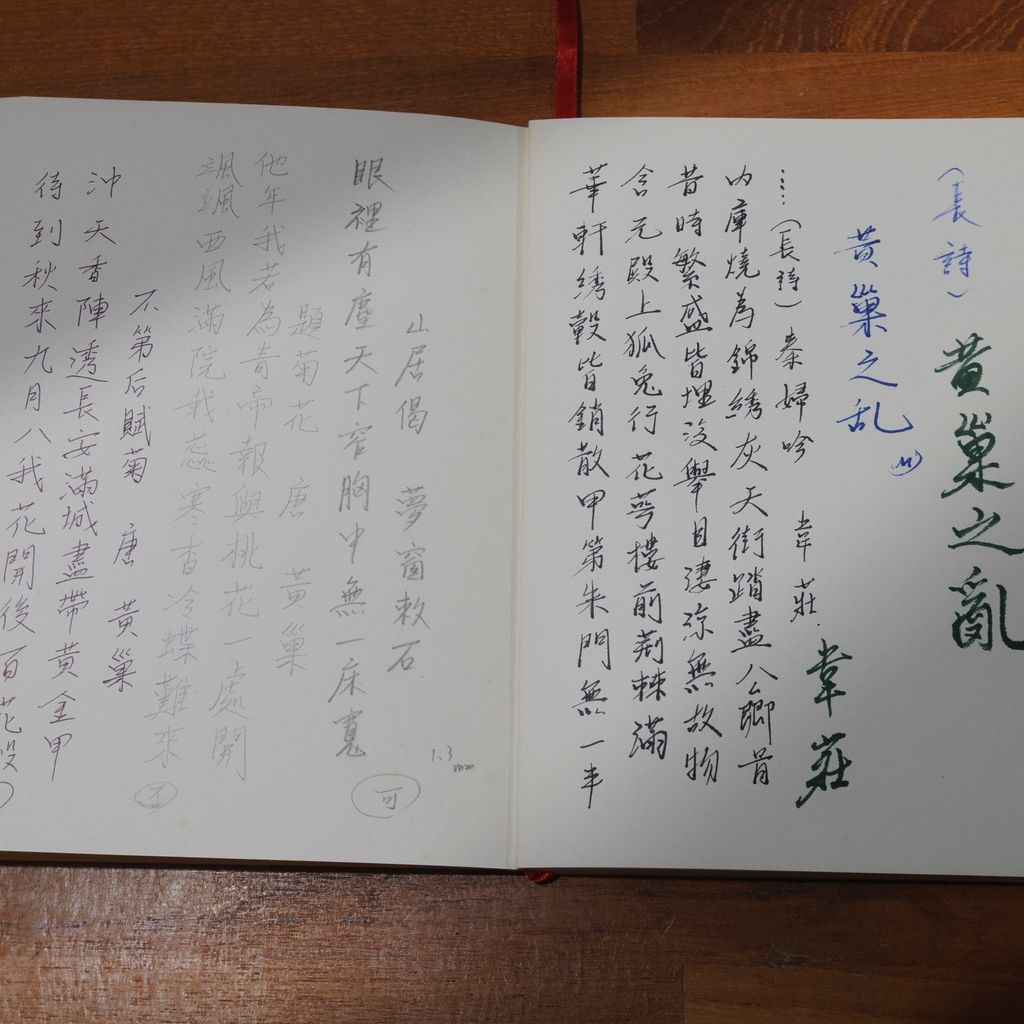 (長詩) 黃巢之亂
黃巢之乱
(M)
……(長詩) 秦婦吟 韋莊
韋莊
内庫燒為錦綉灰天街踏盡公卿骨
昔時繁盛皆埋沒舉目淒涼無故物
含元殿上狐兔行花萼樓前荊棘滿
華軒綉轂皆銷散甲第朱門無一半
山居偈 夢窗敕石
眼裡有塵天下窄胸中無一床寬
可
1.3mm
題菊花 唐 黃巢
他年我若為青帝報與桃花一處開
颯颯西風滿院栽蕊寒香冷蝶難來
不第后賦菊 唐 黃巢
沖天香陣透長安滿城盡帶黃金甲
待到秋來九月八我花開後百花殺